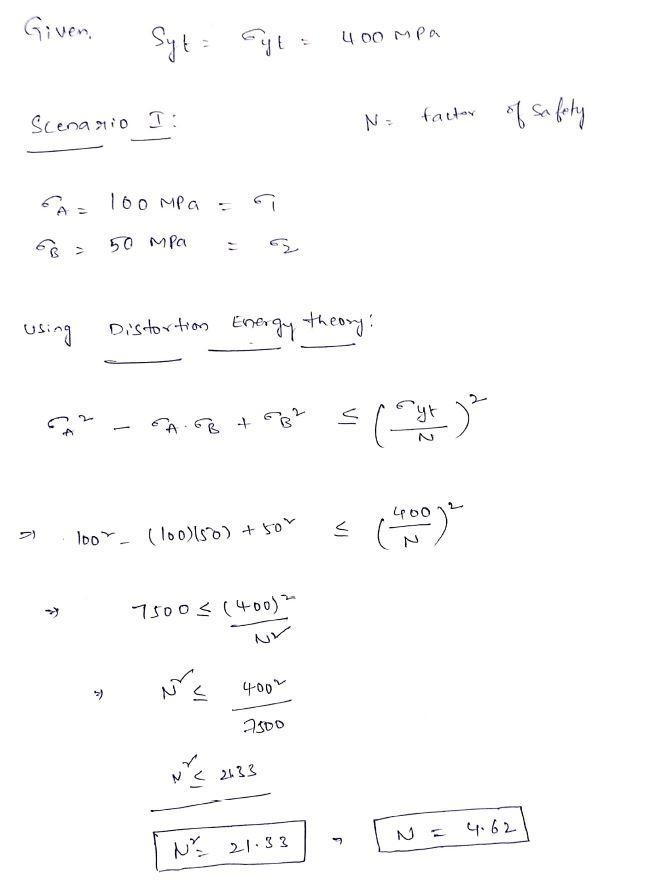 Given, Syt = σyt = 400 MPa
Scenario I: N = factor of safety
σA = 100 MPa = σ1
σB = 50 MPa = σ2
using Distortion Energy theory:
σA² - σA.σB + σB² ≤ (σyt/N)²
⇒ 100² - (100)(50) + 50² ≤ (400/N)²
⇒ 7500 ≤ (400)²/N²
⇒ N² ≤ 400²/7500
N² ≤ 21.33
N² = 21.33 , N = 4.62